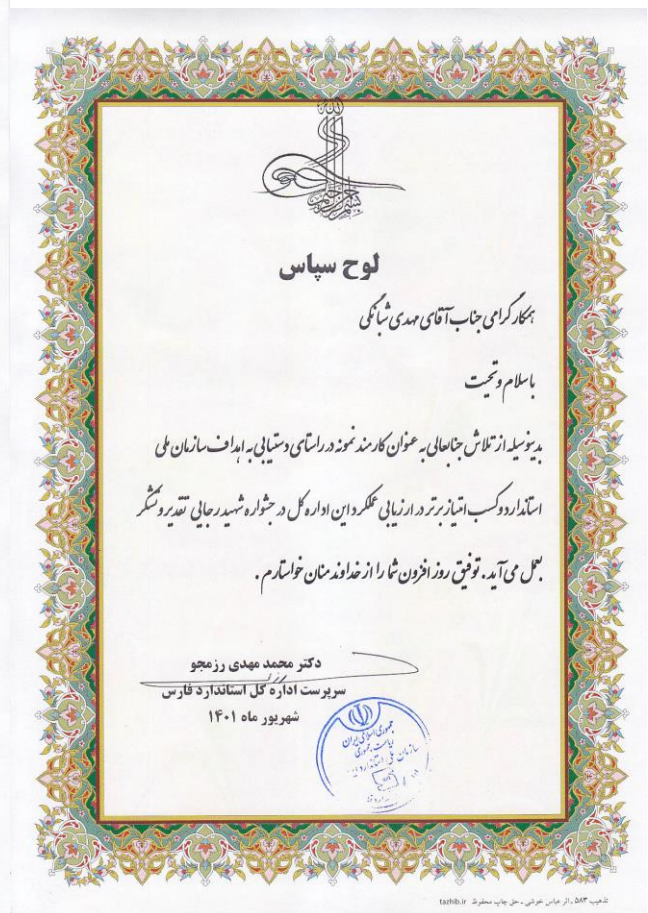 بسم الله الرحمن الرحیم
لوح سپاس
همکار گرامی جناب آقای مهدی شبانگی
باسلام و تحیت
بدینوسیله از تلاش جنابعالی به عنوان کارمند نمونه در راستای دستیابی به اهداف سازمان ملی
استاندارد و کسب امتیاز برتر در ارزیابی عملکرد این اداره کل در جشنواره شهید رجایی تقدیر و تشکر
بعمل می آید. توفیق روز افزون شما را از خداوند منان خواستارم.
دکتر محمد مهدی رزمجو
سرپرست اداره کل استاندارد فارس
شهریور ماه ۱۴۰۱
جمهوری اسلامی ایران
ریاست جمهوری
سازمان ملی استاندارد
تذهیب ۵۸۳ ، اثر عباس خوشی ، حق چاپ محفوظ tazhib.ir